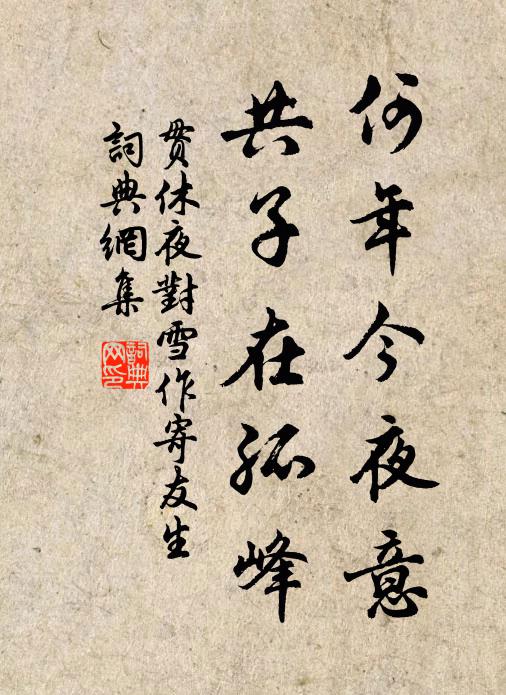 何年今夜意
共子在孤峰
貫休夜對雪作寄友生
詞典網集
詞典网印